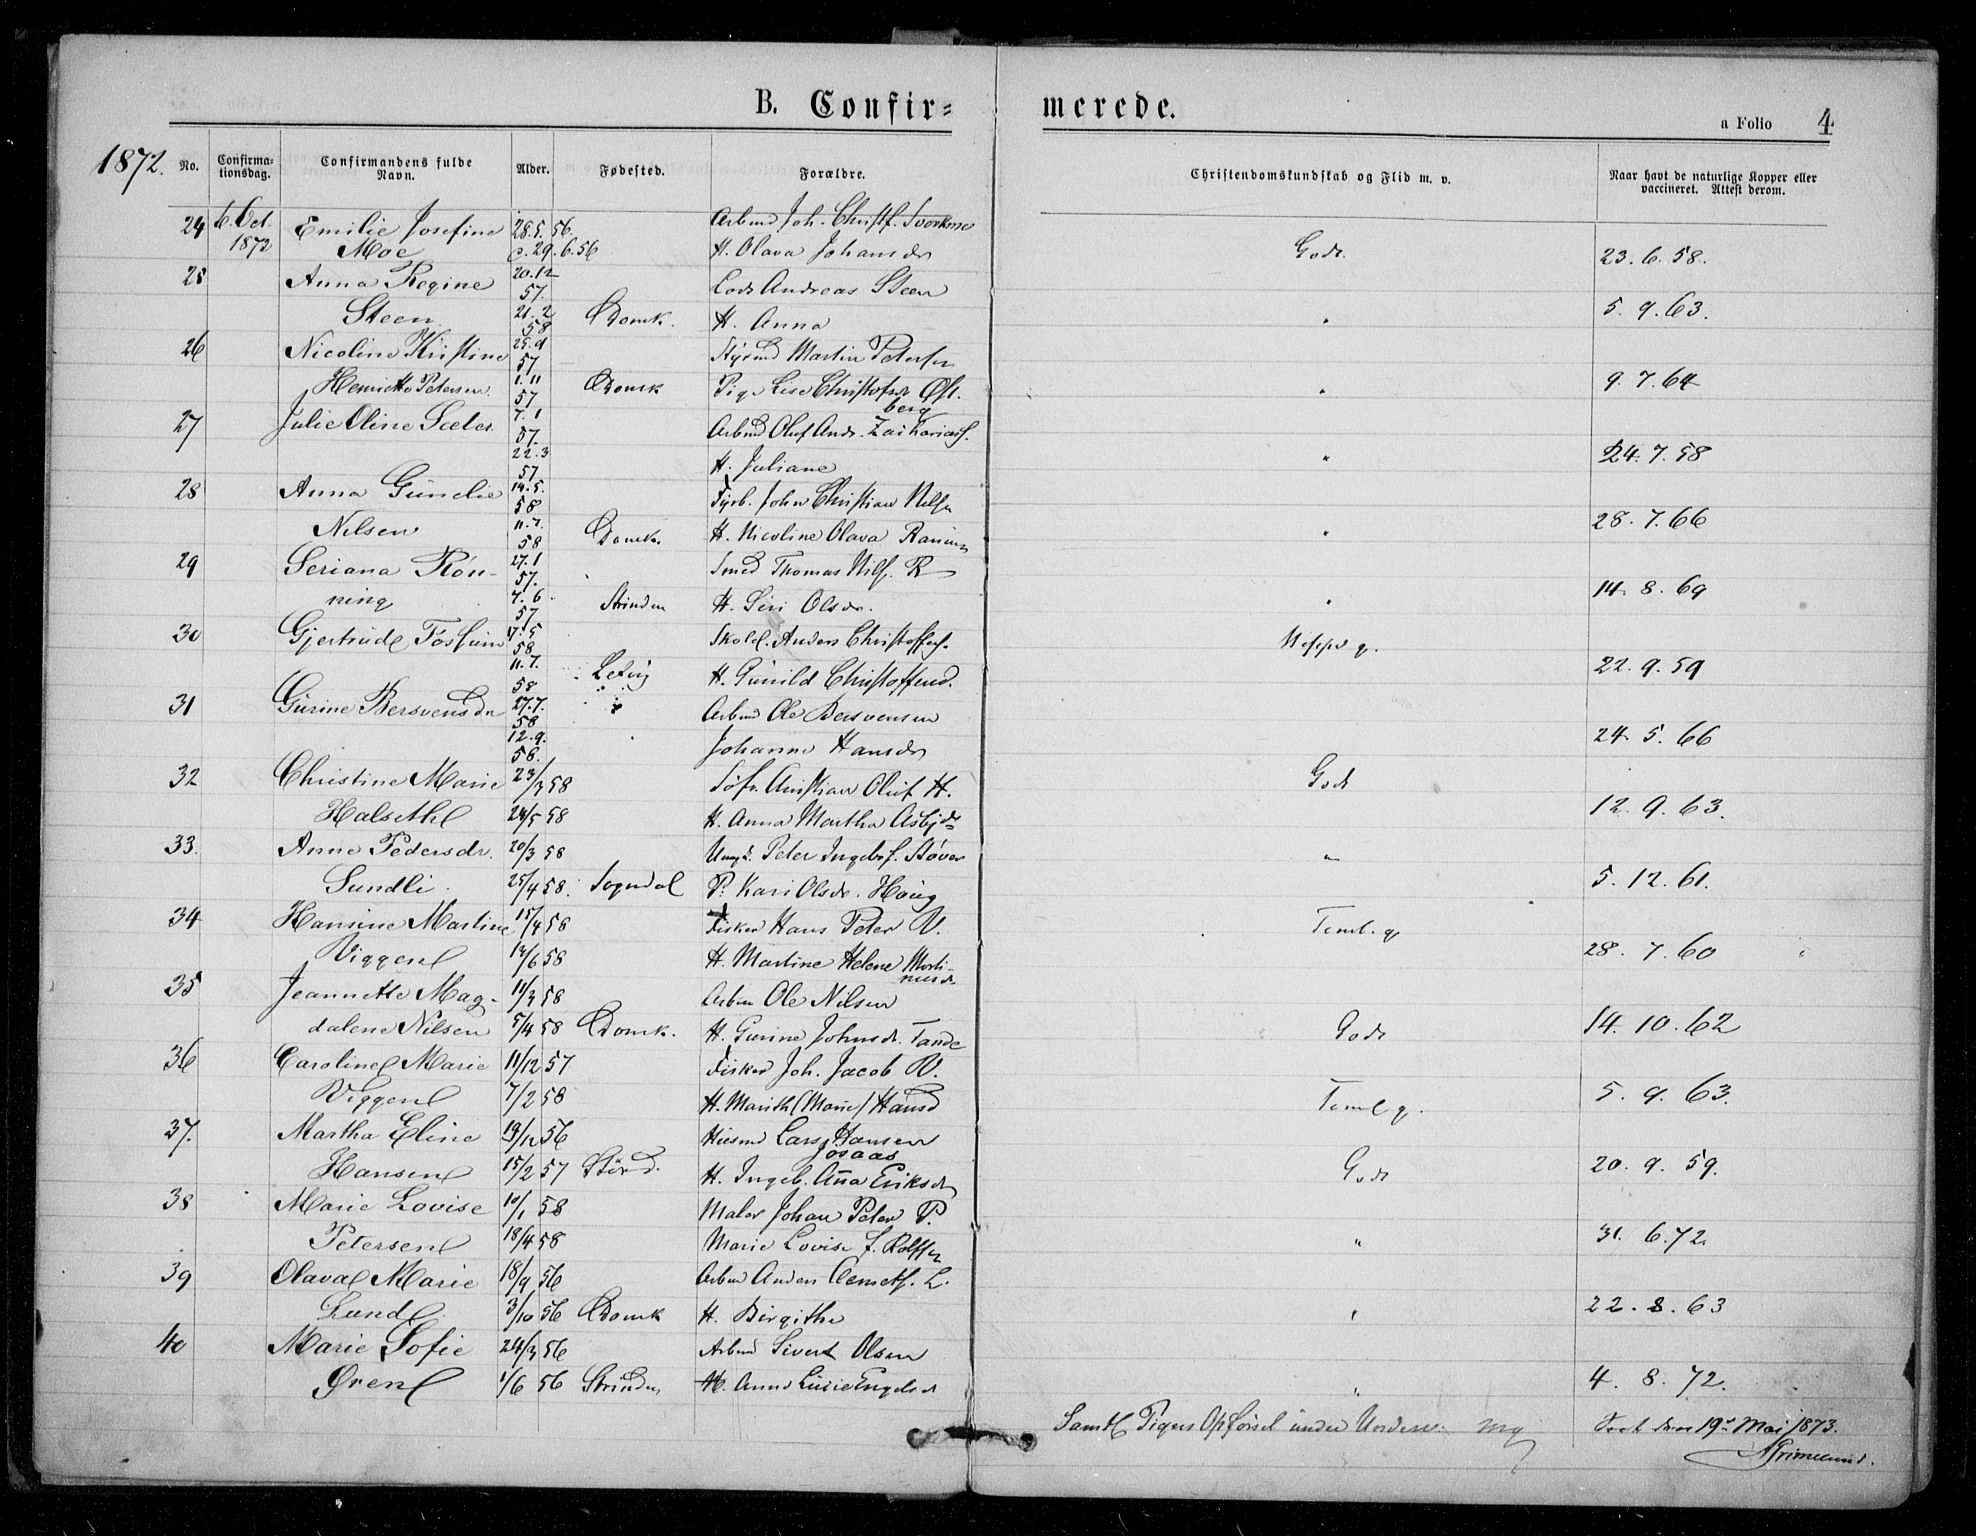 B. Confir=
merede.
a Folio 4
1872.
No. Confirma-tionsdag. Confirmandens fulde Navn. Alder. Fødested. Forældre. Christendomskundskab og Flid m. v. Naar havt de naturlige Kopper eller vaccineret. Attest derom.
24 6 Oct. Emilie Josefine 28.5.56. Arbmd Joh. Christf.
1872 Moe 29.6.56 H. Olava Johansdr Godt. 23.6.58.
25 Anna Regine 20.12 57. Lods Andreas Steen
Steen 21.2 58 Domk. H. Anna " 5.9.63.
26 Nicoline Kristine 25.9 57 Styrmd Martin Petersen
Henriette Petersen 1.11 57 Domk Pige Lise Christofsdr Øst-berg " 9.7.64
27 Julie Oline 7.1 57. Arbmd Oluf Andr. Zachariass.
22.3 57 H. Juliane " 24.7.58
28 Anna Gunelie 14.5. 58 John Christian Nilsen
Nilsen 11.7. 58 Domk. H. Nicoline Olava " 28.7.66
29 Seriana Røn- 27.1 57. Smed Thomas Nilss. R
ning 7.6. 57 Strinden H. Siri Olsdr. " 14.8.69
30 Gjertrude Fossum 17.5 58 Anders Christoffers.
11.7. 58 H. Gunild Christoffersd. 22.9.59
31 Gurine Bersvensdr 27.7. 58 Arbmd Ole Bersvensen
12.9. 58. Johanna Hansdr 24.5.66
32 Christine Marie 23/3 58 Christian Oluf H. Godt
Halseth 24/5 58 H. Anna Martha 12.9.63.
33. Anne Pedersdr. 20/3 58 Ungk. Peter Ingebr. Støver "
Sundli. 25/4 58. P. Kari Olsdr. Haug 5.12.61.
34 Hansine Martine 15/4 58 Fisker Hans Peter V. Teml. g
Viggen 14/6 58 H. Martine Helene Morti-nusdr 28.7.60
35 Jeannette Mag- 11/3 58 Arbmd Ole Nilsen
dalene Nilsen 5/4 58 Domk. H. Gurine Johnsdr. Tande Godt 14.10.62
36 Caroline Marie 11/12 57 Fisker Joh. Jacob V.
Viggen 7/2 58 H. Marith (Marie) Hansd Temlg. 5.9.63.
37. Martha Eline 19/12 56 Husmd Lars Hansen
Josaas
Hansen 15/2 57 Størd. H. Ingeb. Anna Eriksdr Godt 20.9.59.
38 Marie Lovise 10/1 58 Maler Johan Peter P.
Petersen 18/4 58 Marie Lovise f. Rolfsen " 31.6.72.
39 Olava Marie 18/9 56 Arbmd Anders L.
Lund 3/10 56 Domk H. Birgitha " 22.8.63
40 Marie Sofie 24/3 56 Arbmd Sivert Olsen
Øren 1/6 56 Strinden H. Anne Lucie Engelsdr " 4.8.72.
Samtl Pigers Opførsel under Underv. mg
Seet den 19d Mai 1873.
AGrimelund.